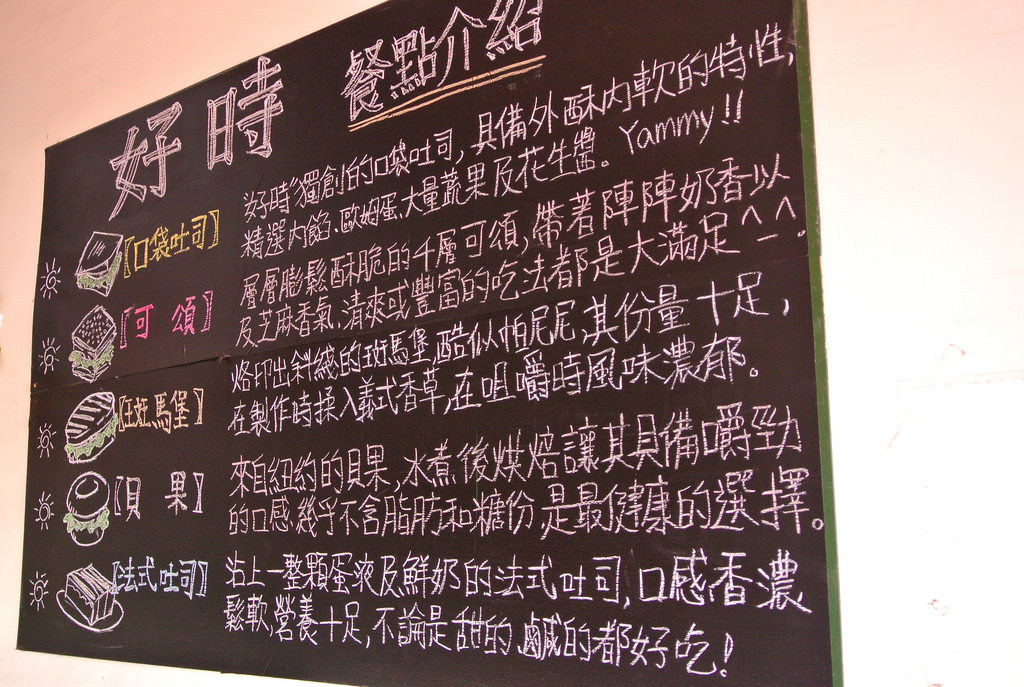 好時 餐點介紹
【口袋吐司】
好時"獨創的口袋吐司，具備外酥內軟的特性，
精選內餡、歐姆蛋、大量蔬果及花生醬。Yammy!!
【可頌】
層層膨鬆酥脆的千層可頌，帶著陣陣奶香以
及芝麻香氣，清爽或豐富的吃法都是大滿足^_^.
【斑馬堡】
烙印出斜綫的斑馬堡，酷似帕尼尼，其份量十足，
在製作時揉入義式香草，在咀嚼時風味濃郁。
【貝果】
來自紐約的貝果，水煮後烘焙讓其具備嚼勁
的口感，幾乎不含脂肪和糖份，是最健康的選擇。
【法式吐司】
沾上一整顆蛋液及鮮奶的法式吐司，口感香濃
鬆軟，營養十足，不論是甜的、鹹的都好吃！